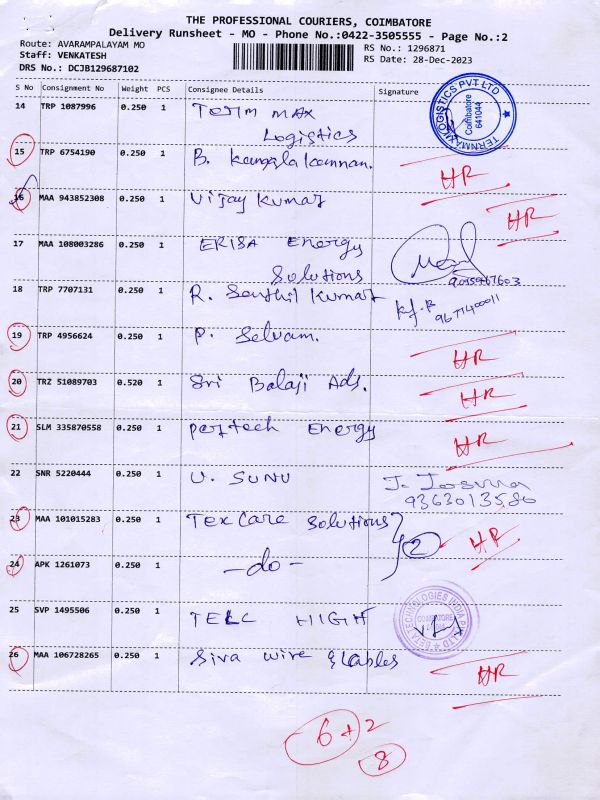 THE PROFESSIONAL COURIERS, COIMBATORE
Delivery Runsheet - MO - Phone No.:0422-3505555 - Page No.:2
Route: AVARAMPALAYAM MO
RS No.: 1296871
Staff: VENKATESH
RS Date: 28-Dec-2023
DRS No.: DCJB129687102
S No Consignment No Weight PCS Consignee Details Signature
14 TRP 1087996 0.250 1 Term max
Logistics
TERNMAX LOGISTICS PVT LTD Coimbatore 641044
15 TRP 6754190 0.250 1 B. Kamala Kannan. HR
16 MAA 943852308 0.250 1 Vijay Kumar HR
17 MAA 108003286 0.250 1 ERISA Energy
Solutions
18 TRP 7707131 0.250 1 R. Senthil Kumar
19 TRP 4956624 0.250 1 P. Selvam. HR
20 TRZ 51089703 0.520 1 Sri Balaji Ads. HR
21 SLM 335870558 0.250 1 Pertech Energy HR
22 SNR 5220444 0.250 1 U. SUNU
9363013580
23 MAA 101015283 0.250 1 Tex Care Solutions 2 HR
24 APK 1261073 0.250 1 -do-
25 SVP 1495506 0.250 1 TELC HIGH
TECHNOLOGIES INDIA PVT LTD COIMBATORE
26 MAA 106728265 0.250 1 Siva Wire & Cables HR
6+2
8